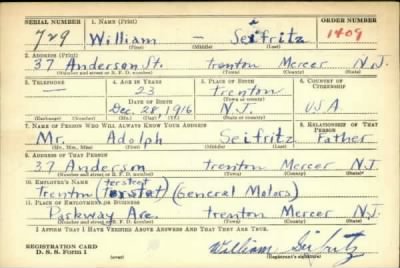 SERIAL NUMBER 1. NAME (Print) ORDER NUMBER
729 William — Seifritz 1409
(First) (Middle) (Last)
2. ADDRESS (Print)
37 Anderson St. Trenton Mercer N.J.
(Number and street or R. F. D. number) (Town) (County) (State)
3. TELEPHONE 4. AGE IN YEARS 5. PLACE OF BIRTH 6. COUNTRY OF CITIZENSHIP
— 23 Trenton
DATE OF BIRTH (Town or county)
Dec. 28, 1916 N.J. U.S.A.
(Exchange) (Number) (Mo.) (Day) (Yr.) (State or country)
7. NAME OF PERSON WHO WILL ALWAYS KNOW YOUR ADDRESS 8. RELATIONSHIP OF THAT PERSON
Mr. Adolph Seifritz Father
(Mr., Mrs., Miss) (First) (Middle) (Last)
9. ADDRESS OF THAT PERSON
37 Anderson Trenton Mercer N.J.
(Number and street or R. F. D. number) (Town) (County) (State)
10. EMPLOYER'S NAME
Trenton (General Motors)
11. PLACE OF EMPLOYMENT OR BUSINESS
Parkway Ave. Trenton Mercer N.J.
(Number and street or R. F. D. number) (Town) (County) (State)
I AFFIRM THAT I HAVE VERIFIED ABOVE ANSWERS AND THAT THEY ARE TRUE.
REGISTRATION CARD
D. S. S. Form 1 (over) William Seifritz
(Registrant's signature)